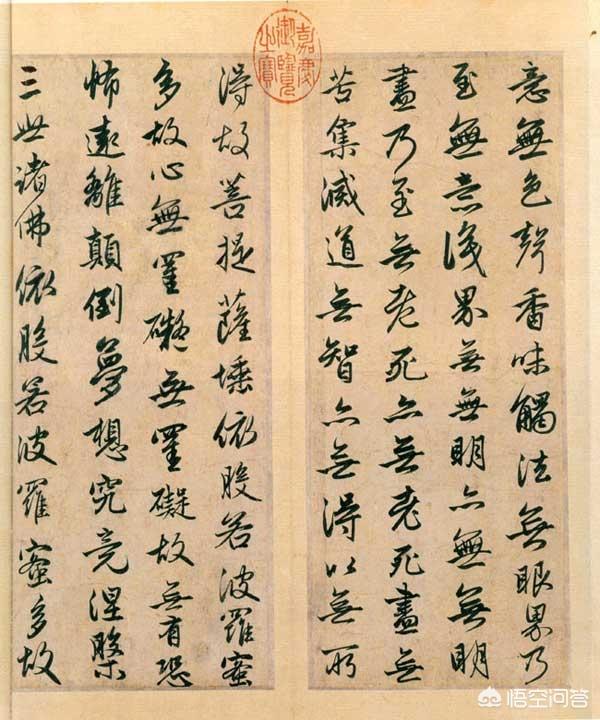 意無色聲香味觸法無眼界乃
至無意識界無無明亦無無明
盡乃至無老死亦無老死盡無
苦集滅道無智亦無得以無所
得故菩提薩埵依般若波羅蜜
多故心無罣礙無罣礙故無有恐
怖遠離顛倒夢想究竟涅槃
三世諸佛依般若波羅蜜多故
嘉慶御覽之寶
悟空问答